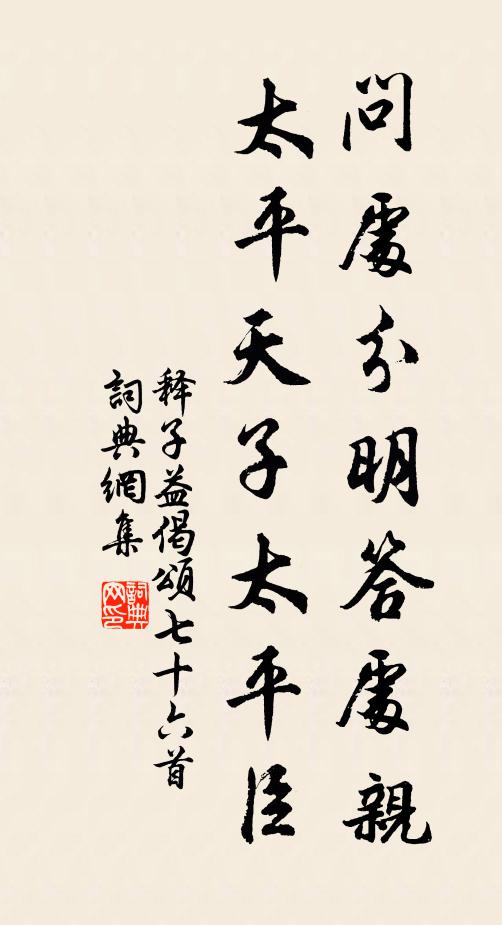 問處分明答處親
太平天子太平臣
释子益偈頌七十六首
詞典網集
詞典网印